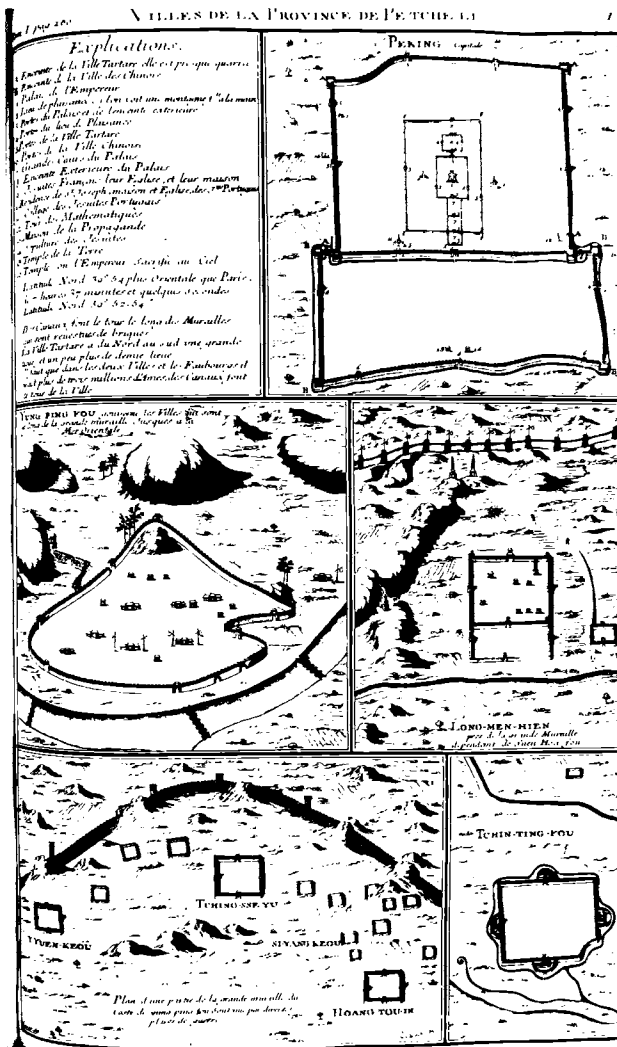 VILLES DE LA PROVINCE DE PETCHELI
Explications.
Enceinte de la Ville Tartare elle est presque quarrée
Enceinte de la Ville des Chinois
Palais de l'Empereur
Lieu de plaisance l'on voit une montagne
Portes du Palais et de l'enceinte exterieure
Porte du lieu de Plaisance
Porte de la Ville Tartare
Porte de la Ville Chinoise
Grande Cours du Palais
Enceinte Exterieure du Palais
Jesuites François leur Eglise, et leur maison
Joseph, maison et Eglise des Portugais
College des Jesuites Portugais
Tour des Mathematiques
Maison de la Propagande
Sepulture des Jesuites
Temple de la Terre
Temple ou l'Empereur Sacrifie au Ciel
Latitude Nord 39° 54 plus Orientale que Paris
heures 37 minuttes et quelques secondes
Latitude Nord 39° 52-54
Canaux font le tour le long des Murailles
qui sont revestues de briques
La Ville Tartare a du Nord au sud une grande
et un peu plus de demie lieue
que dans les deux Villes et les Fauxbourgs il
plus de trois millions d'Ames, des Canaux font
le tour de la Ville
PEKING Capitale
YUNG PING FOU gouverne les Villes qui sont
long de la grande muraille Jusques a la
Mer Orientale
LONG-MEN-HIEN
pres de la grande Muraille
dependant de Suen Hoa fou
TCHING-SSE-YU
YUEN-KEOU
SI-YANG KEOU
HOANG TOU-IN
Plan d'une partie de la grande muraille du
Coste de yung ping fou dont on peu
places de guerre
TCHIN-TING-FOU